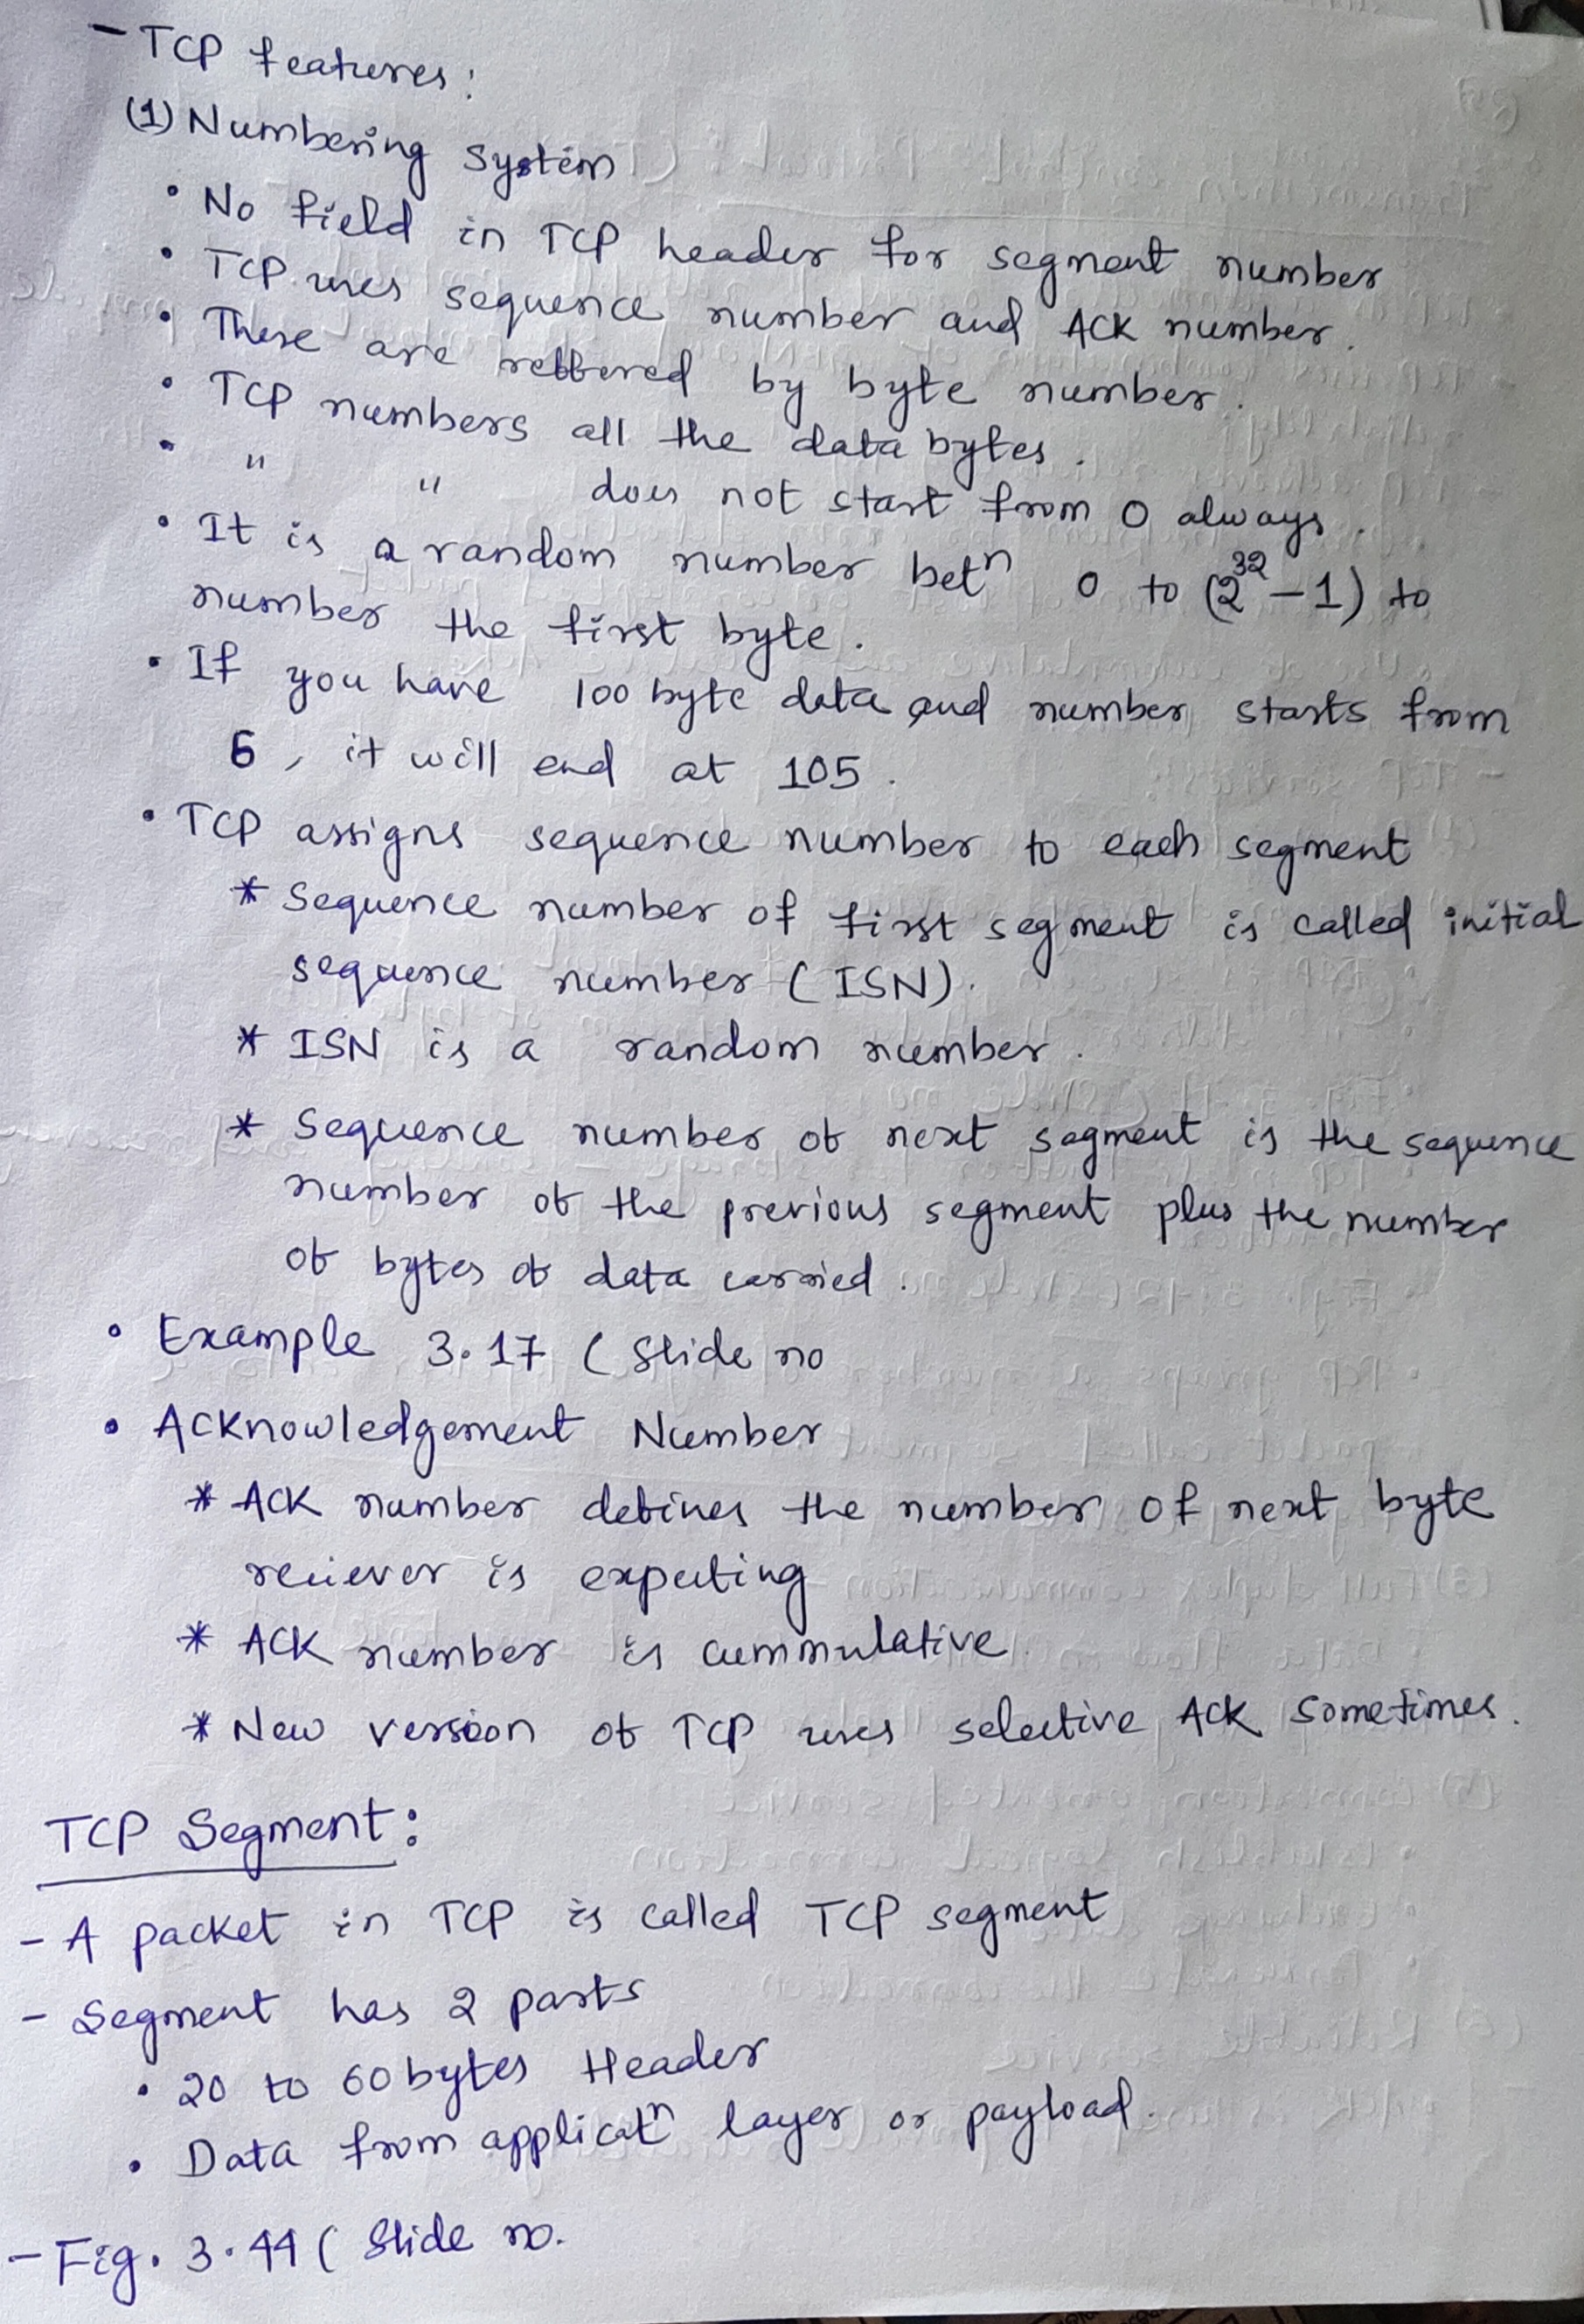 - TCP features:
(1) Numbering System
• No field in TCP header for segment number
• TCP uses sequence number and ACK number.
• These are reffered by byte number.
• TCP numbers all the data bytes.
• " " does not start from 0 always.
• It is a random number betⁿ 0 to (2³²-1) to
number the first byte.
• If you have 100 byte data and number starts from
6, it will end at 105.
• TCP assigns sequence number to each segment
* Sequence number of first segment is called initial
sequence number (ISN).
* ISN is a random number.
* Sequence number of next segment is the sequence
number of the previous segment plus the number
of bytes of data carried.
• Example 3.17 (Slide no
• Acknowledgement Number
* ACK number defines the number of next byte
reciever is expecting
* ACK number is cummulative.
* New version of TCP uses selective ACK sometimes.
TCP Segment:
- A packet in TCP is called TCP segment
- Segment has 2 parts
• 20 to 60 bytes Header
• Data from applicatⁿ layer or payload.
- Fig. 3.44 (Slide no.